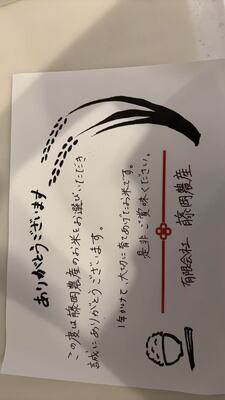 ありがとうございます
この度は藤岡農産のお米をお選びいただき
誠にありがとうございます。
1年かけて、大切に育てあげたお米です。
是非ご賞味ください。
有限会社 藤岡農産